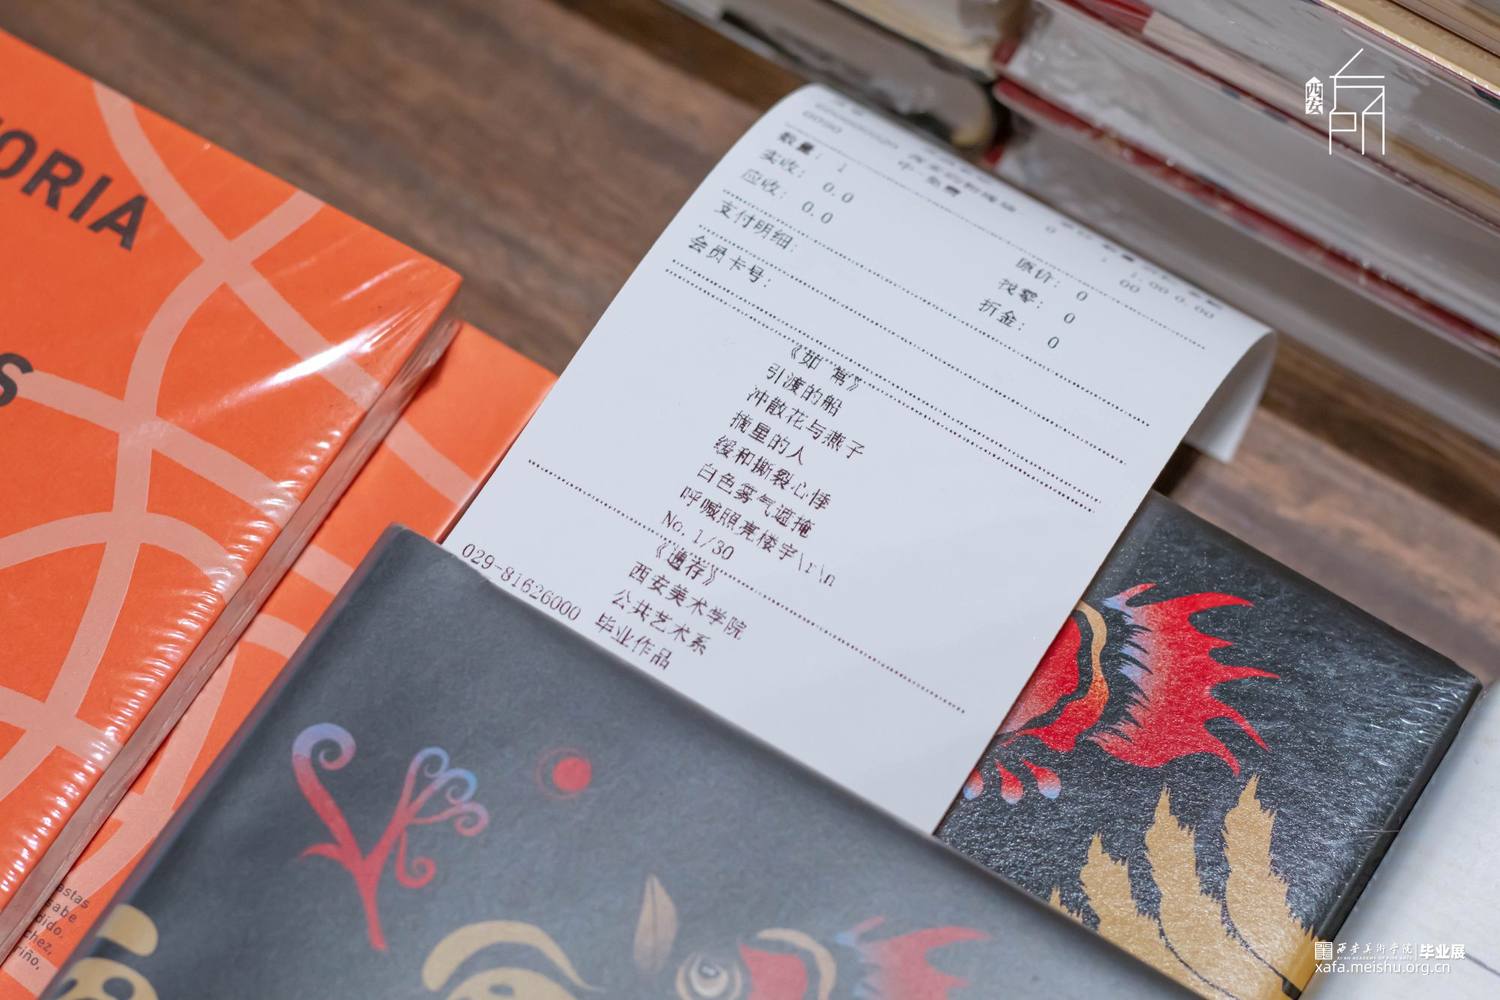 ORIA
S
astas
sabe
dido.
chez,
riño,
数量: 1
实收: 0.0
应收: 0.0
支付明细:
会员卡号:
原价: 0
找零: 0
折金: 0
《如常》
引渡的船
冲散花与燕子
摘星的人
缓和撕裂心悸
白色雾气遮掩
呼喊照亮楼宇\r\n
No.1/30
《速荐》
西安美术学院
公共艺术系
029-81626000 毕业作品
西安
西安美术学院 毕业展
xafa.meishu.org.cn